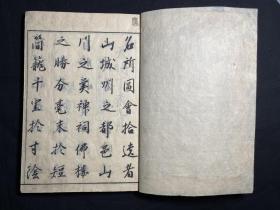 名所圖會拾遺者
山城州之都邑山
川之奠神祠佛樓
之勝分毫末於短
簡籠千里於寸陰